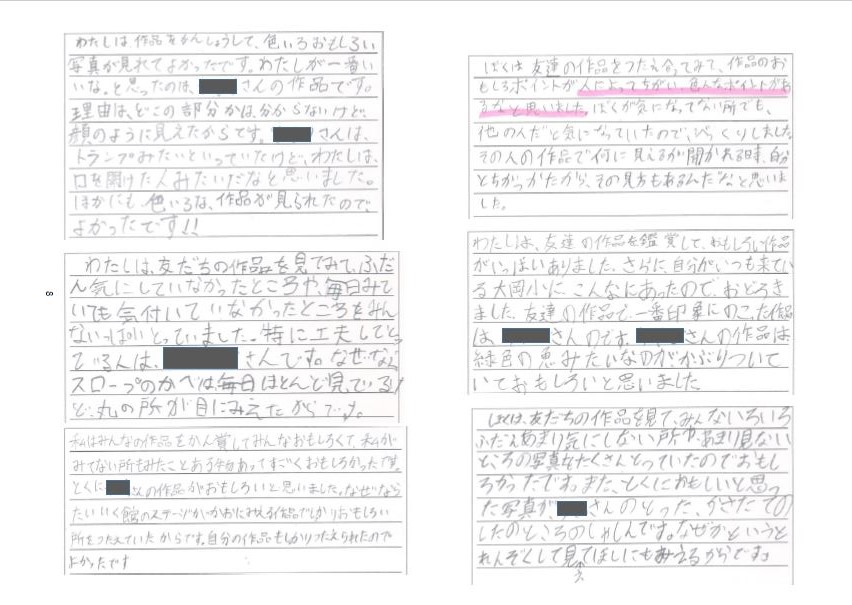 わたしは、作品をかんしょうして、色いろおもしろい
写真が見れてよかったです。わたしが一番い
いな。と思ったのは、さんの作品です。
理由は、どこの部分かは、分からないけど、
顔のように見えたからです。さんは、
トランプみたいといっていたけど、わたしは、
口を開けた人みたいだなと思いました。
ほかにも色いろな、作品が見られたので、
よかったです!!
わたしは、友だちの作品を見てみて、ふだ
ん気にしていなかったところや、毎日みて
いても気付いていなかったところをみん
ないっぱいとっていました。特に工夫してとっ
ている人は、さんです。なぜなら
スロープのかべは毎日ほとんど見ている
ど、丸の所が目にみえたからです。
私はみんなの作品をかん賞してみんなおもしろくて、私が
みてない所もみたことある物あってすごくおもしろかったです。
とくにさんの作品がおもしろいと思いました。なぜなら
たいいく館のステージがかおにみえる作品でしかりおもしろい
所をつたえていたからです。自分の作品もしかりつたえられたので
よかったです
8
ぼくは友達の作品をつたえ合ってみて、作品のお
もしろポイントが人によってちがい、色んなポイントがあ
るなと思いました。ぼくが気になってない所でも、
他の人だと気になっていたので、びっくりしました。
その人の作品で何に見えるか聞かれる時、自分
とちがったから、その見方もあるんだなと思いま
した。
わたしは、友達の作品を鑑賞して、おもしろい作品
がいっぱいありました。さらに、自分がいつも来てい
る大岡小に、こんなにあったので、おどろき
ました。友達の作品で、一番印象にのこった作品
は、さんのです。さんの作品は、
緑色の恵みたいなのが、かぶりついて
いておもしろいと思いました。
ぼくは、友だちの作品を見て、みんないろいろ
ふだんあまり気にしない所や、あまり見ない
ところの写真をたくさんとっていたのでおもし
ろかったです。また、とくにおもしいと思っ
た写真がさんのとった、かさたての
したのところのしゃしんです。なぜかというと
れんぞくして見てほしにもみえるからです。